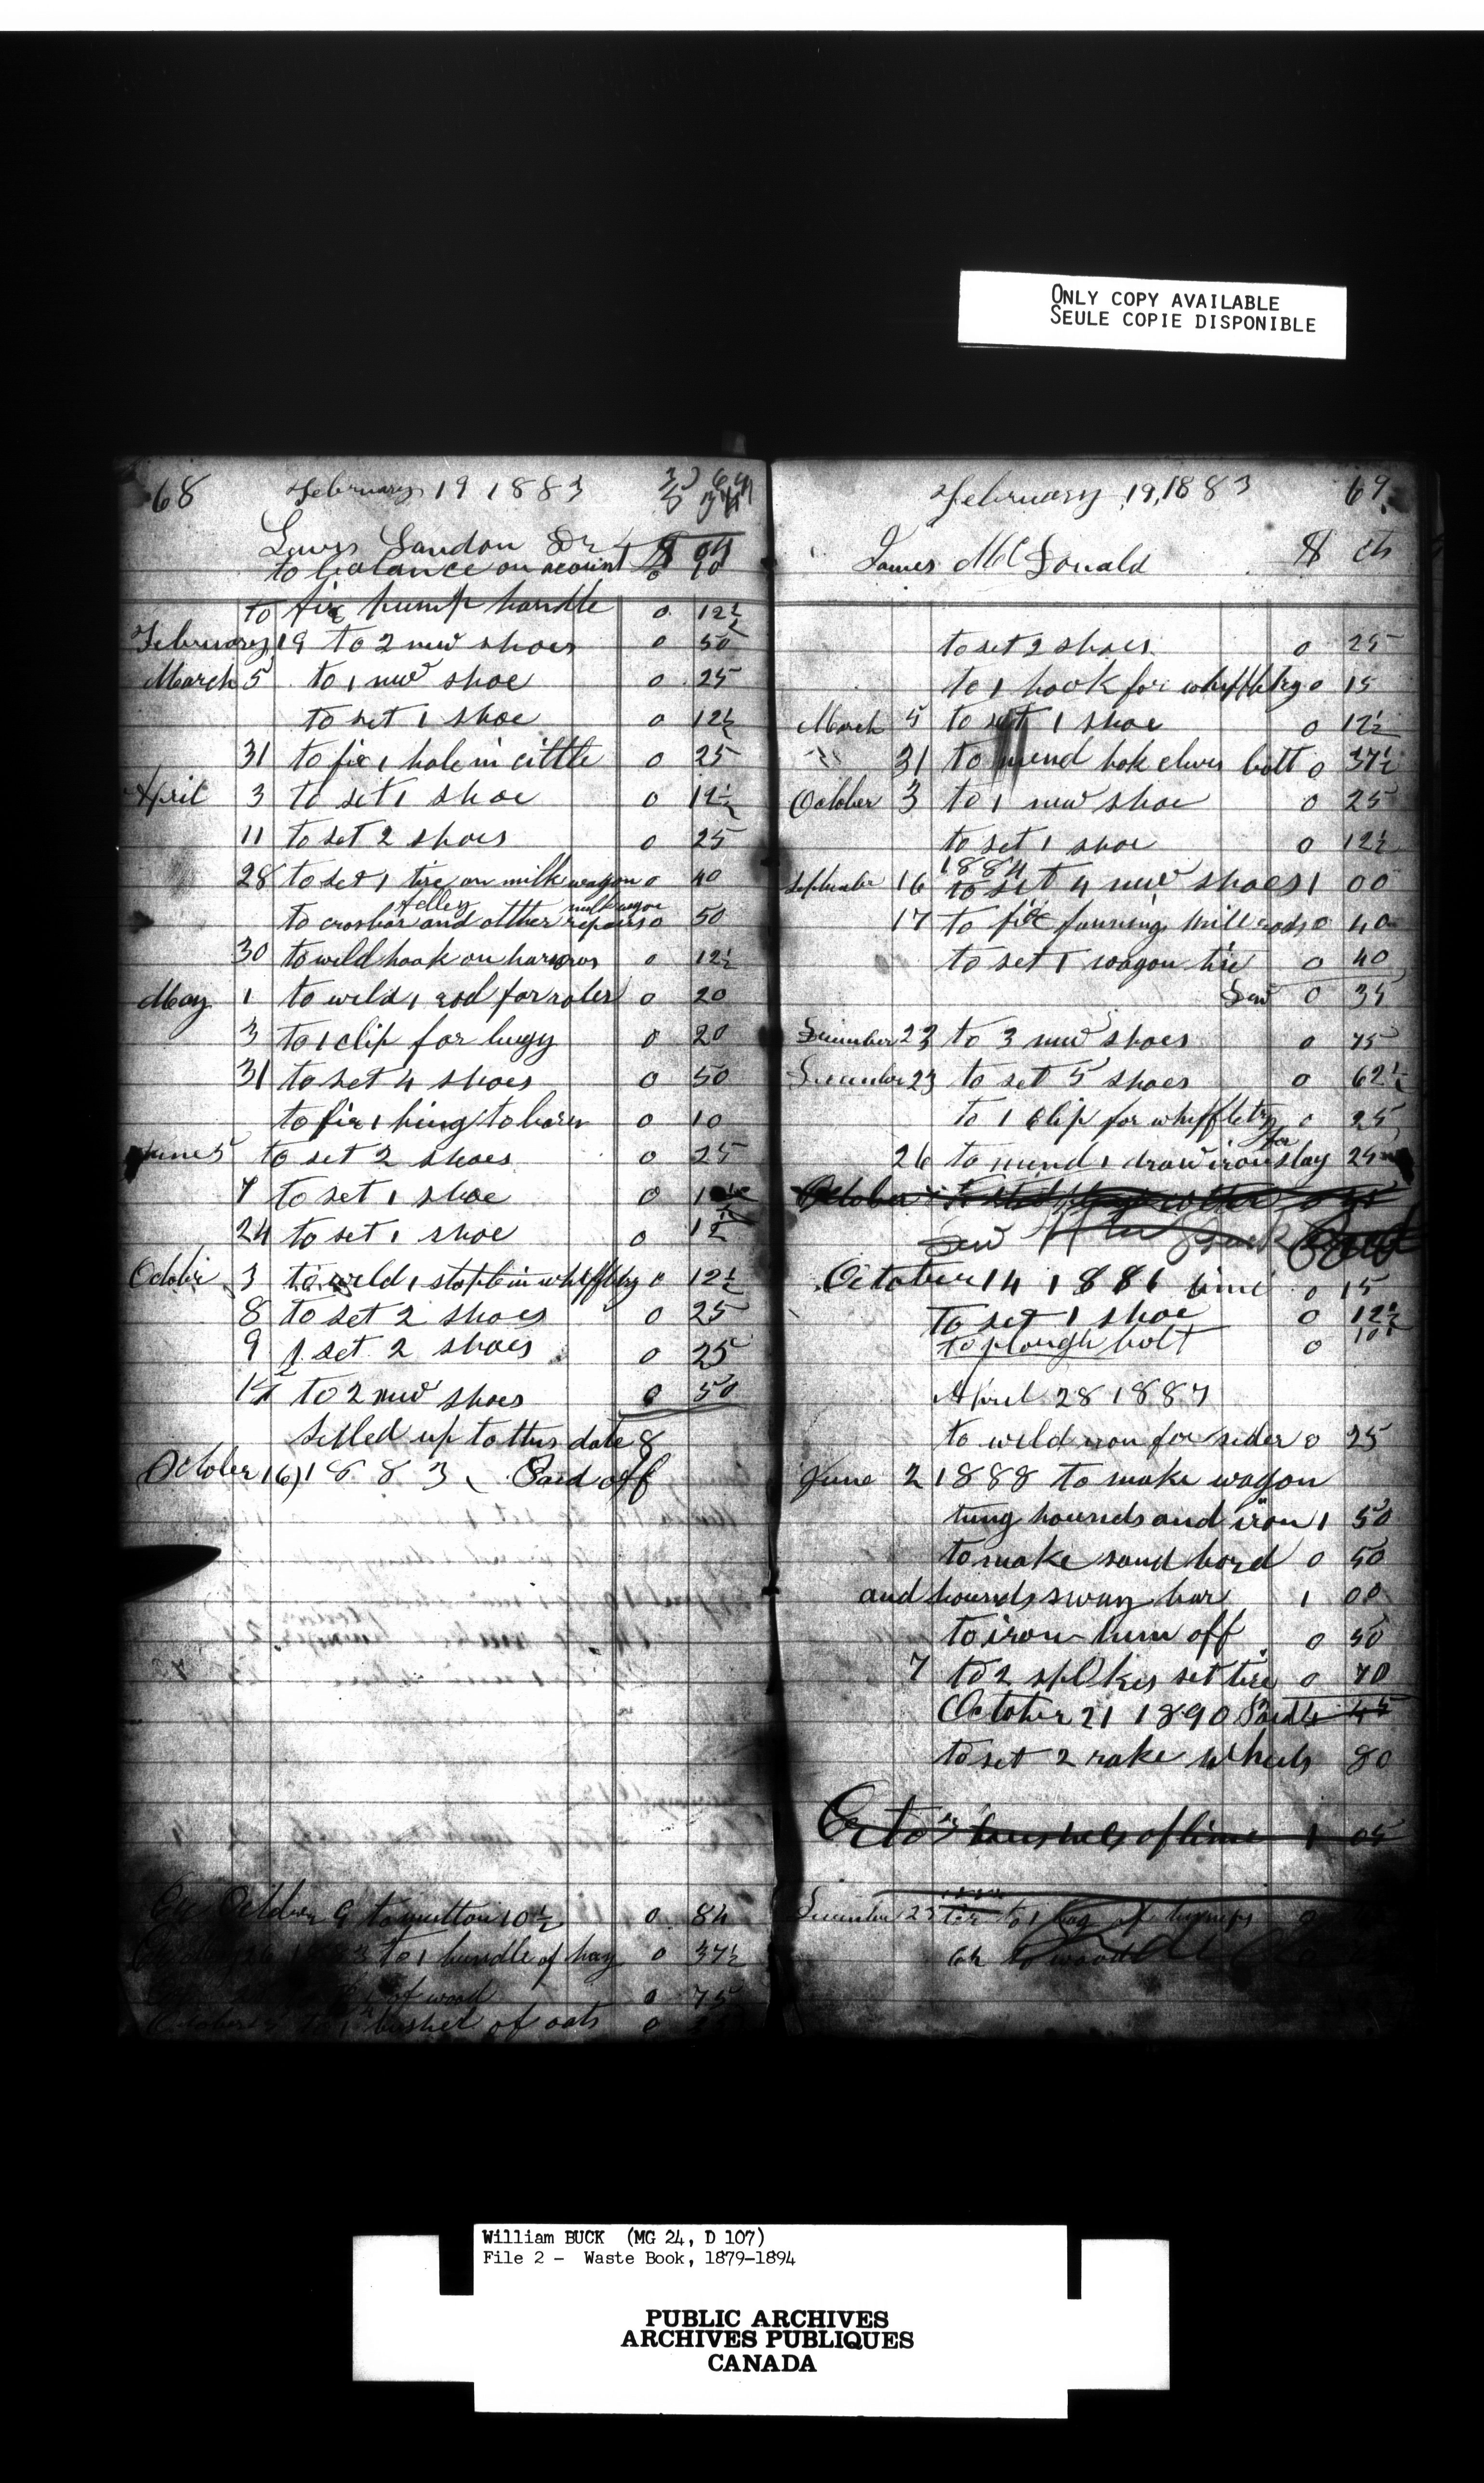 ONLY COPY AVAILABLE
SEULE COPIE DISPONIBLE
68 February 19 1883
Lewis Landon Dr
to balance on acount 0 90
to fix pump handle 0 12½
February 19 to 2 new shoes 0 50
March 5 to 1 new shoe 0 25
to set 1 shoe 0 12½
31 to fix 1 hole in cittle 0 25
April 3 to set 1 shoe 0 12½
11 to set 2 shoes 0 25
28 to set 1 tire on milk wagon 0 40
felley milk wagon
to crosbar and other repairs 0 50
30 to weld hook on harows 0 12½
May 1 to weld 1 rod for roler 0 20
3 to 1 clip for bugy 0 20
31 to set 4 shoes 0 50
to fix 1 hing to barn 0 10
June 5 to set 2 shoes 0 25
7 to set 1 shoe 0
24 to set 1 shoe 0 12
October 3 to weld 1 staple in whiffltry 0 12½
8 to set 2 shoes 0 25
9 set 2 shoes 0 25
to 2 new shoes 0 50
setled up to this date
October 16 1883 Paid off
October 9 to mutton 10½ 0 84
to 1 bundle of hay 0 37½
of wood 0 75
to 1 bushel of oats 0
February 19, 1883 69
James McDonald $ cts
to set 2 shoes 0 25
to 1 hook for whiffltry 0 15
March 5 to set 1 shoe 0 12½
" 31 to mend bolt 0 37½
October 3 to 1 new shoe 0 25
to set 1 shoe 0 12½
1884
September 16 to set 4 new shoes 1 00
17 to fix fanning mill rods 0 40
to set 1 wagon tire 0 40
Dew 0 35
December 23 to 3 new shoes 0 75
December 23 to set 5 shoes 0 62½
to 1 clip for whiffletry 0 25
for
26 to mend 1 draw iron slay 25
October
Dew
October 14 1886 time 0 15
to set 1 shoe 0 12½
to plough bolt 0 10
April 28 1887
to weld iron for sider 0 25
June 2 1888 to make wagon
tung hounds and iron 1 50
to make sand bord 0 50
and hounds sway bar 1 00
to iron them off 0 50
7 to 2 spokes set tire 0 70
October 21 1890 Paid 4 45
to set 2 rake wheels 80
Cr to 3 bushels of lime 1 05
December 23 to 1 bag of turnips 0
to wood
William BUCK (MG 24, D 107)
File 2 - Waste Book, 1879-1894
PUBLIC ARCHIVES
ARCHIVES PUBLIQUES
CANADA